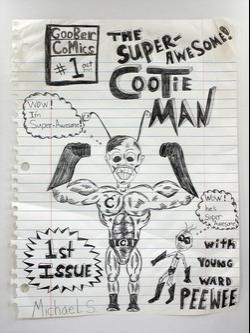 GooBer
Comics
#1
THE
SUPER-
AWESOME!
COOTIE
MAN
WOW!
I'm
Super-Awesome
WOW!
he's
Super
Awesome
C
C
1st
ISSUE
with
YOUNG
WARD
PEEWEE
Michael S.